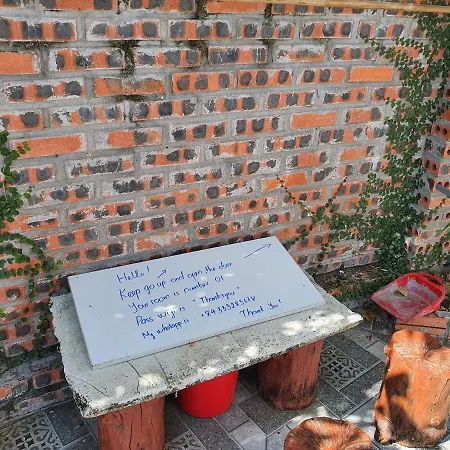 Hello! ↗
Keep go up and open the door
Your room is number 01
Pass wifi is "Thankyou"
My whatsapp is +84333285678
Thank You!